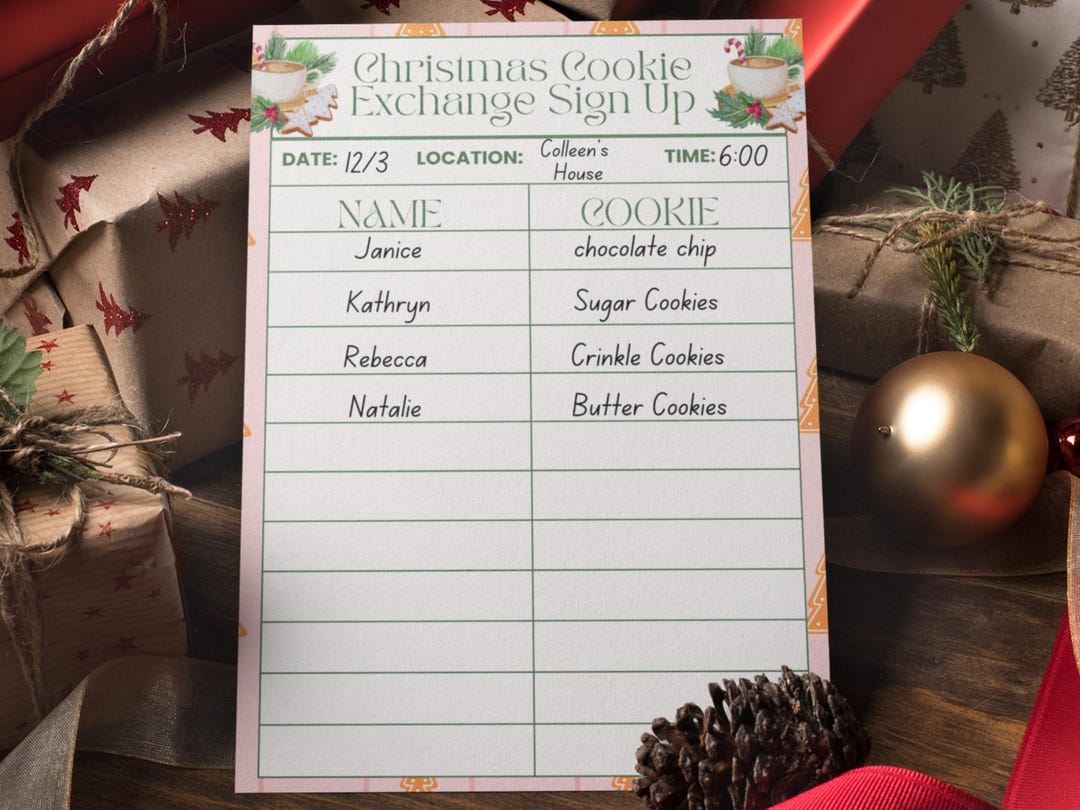 Christmas Cookie
Exchange Sign Up
DATE: 12/3 LOCATION: Colleen's House TIME: 6:00
NAME COOKIE
Janice chocolate chip
Kathryn Sugar Cookies
Rebecca Crinkle Cookies
Natalie Butter Cookies